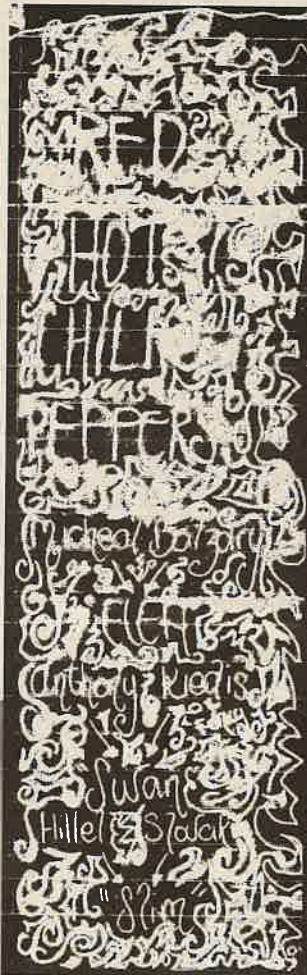 RED
HOT
HILI
PEPPER
Micheal Balzary
FLEA
Anthony Kiedis
Swan
Hillel Slovak
"Slim"